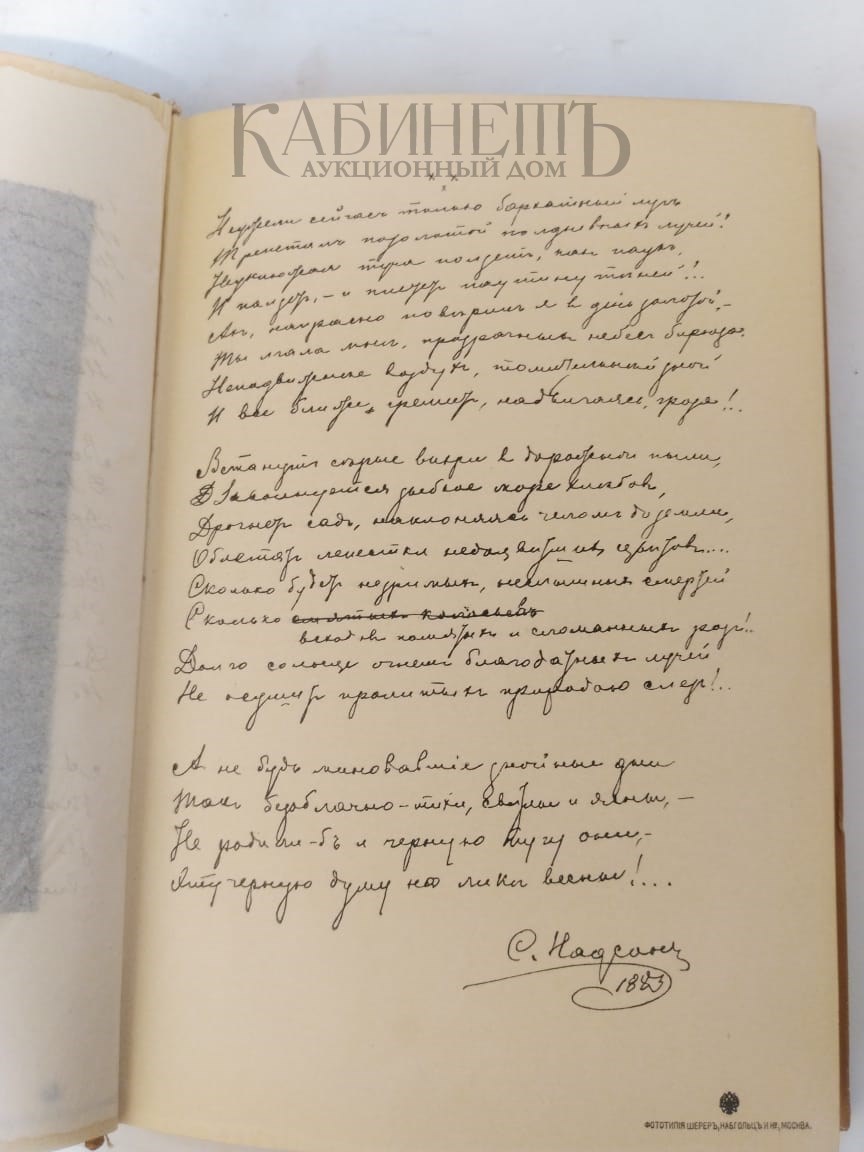 КАБИНЕТЪ
АУКЦИОННЫЙ ДОМ
* *
*
Неужели сейчасъ только бархатный лугъ
Трепеталъ позолотой полдневныхъ лучей?
Неуклюжая туча ползетъ, какъ паукъ,
И ползетъ, – и плететъ паутину тѣней!..
Ахъ, напрасно повѣрилъ я в день золотой, –
Ты лгала мнѣ, прозрачныхъ небесъ бирюза:
Неподвижнѣе воздухъ, томительный зной
И все ближе гремитъ, надвигаясь, гроза!..
Встанутъ сѣрые вихри в дорожной пыли,
Заволнуется зыбкое море хлѣбовъ,
Дрогнетъ садъ, наклоняясь челомъ до земли,
Облетятъ лепестки недоцвѣтшихъ цвѣтовъ....
Сколько будетъ незримыхъ, неслышныхъ смертей
Сколько смятыхъ колосьевъ
всходовъ помятыхъ и сломанныхъ розъ!..
Долго солнце огнемъ благодатныхъ лучей
Не осушитъ пролитыхъ природою слезъ!..
А не будь миновавшіе знойные дни
Такъ безоблачно-тихи, свѣтлы и ясны, –
Не родили-бъ и черную тучу они, –
Эту черную думу на ликѣ весны!...
С. Надсонъ
1883
ФОТОТИПІЯ ШЕРЕРЪ, НАБГОЛЬЦЪ И Кº, МОСКВА.